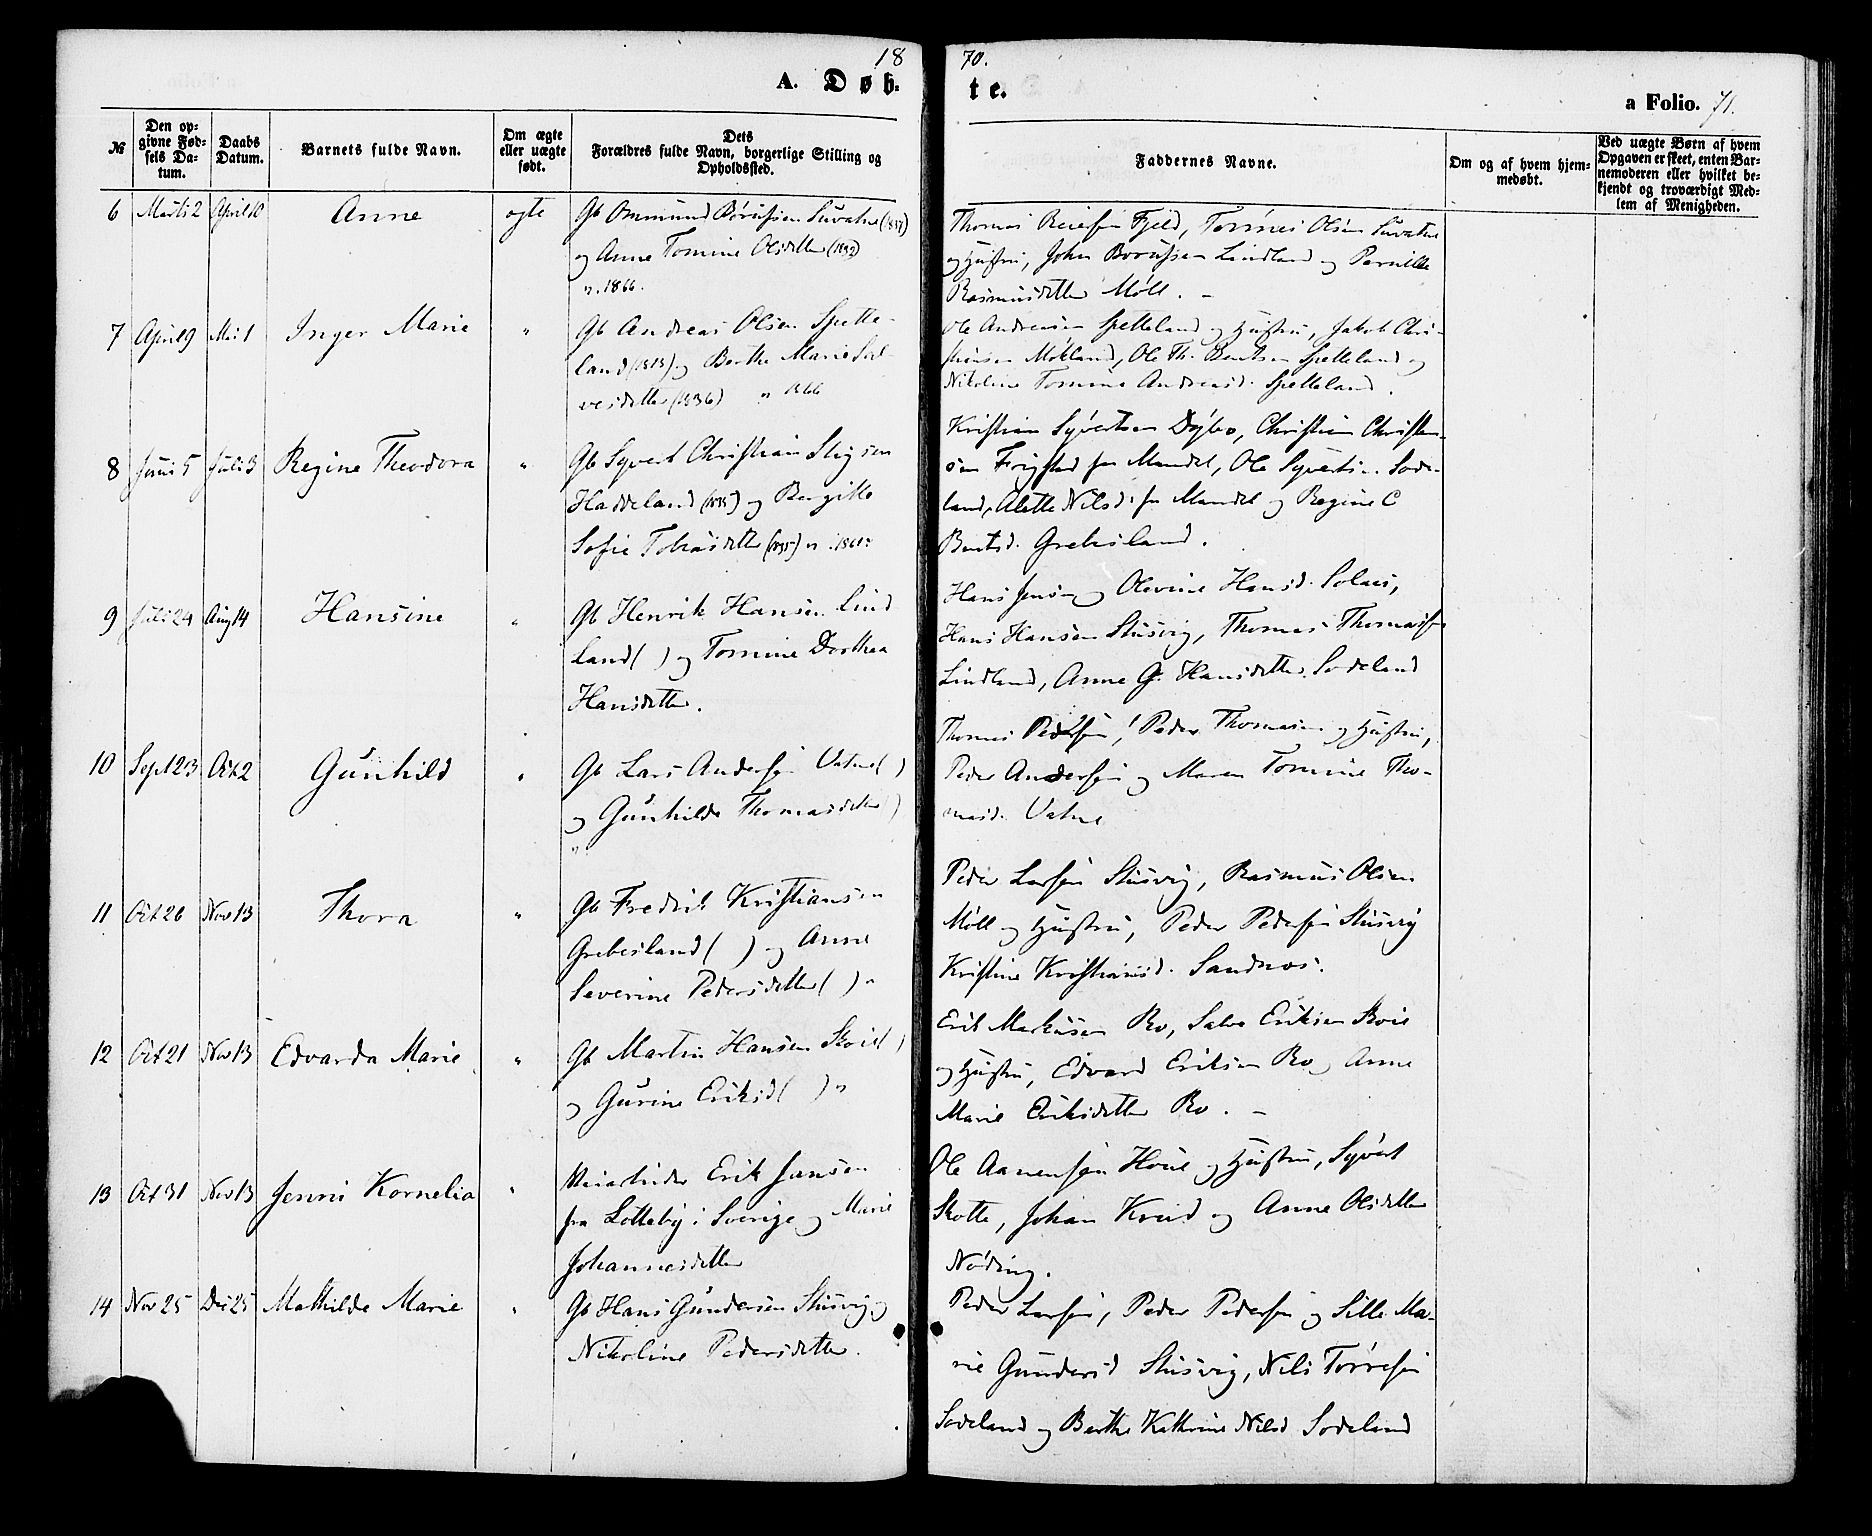 18 70.
A. Døb- te.
a Folio. 71.
№
Den op-
givne Fød-
sels Da-
tum.
Daabs
Datum.
Barnets fulde Navn.
Om ægte
eller uægte
født.
Dets
Forældres fulde Navn, borgerlige Stilling og
Opholdssted.
Faddernes Navne.
Om og af hvem hjem-
medøbt.
Ved uægte Børn af hvem
Opgaven er skeet, enten Bar-
nemoderen eller hvilket be-
kjendt og troværdigt Med-
lem af Menigheden.
6 Marti 2 April 10 Anne ægte
Gb Ommund Børufsen Suvatne (1837)
og Anne Tomine Olsdatter (1832)
n. 1866.
Thomas Reiersen Fjeld, Tørres Olsen Suvatne
og Hustru, John Børufsen Lindland og Pernille
Rasmusdatter Møll. –
7 April 9 Mai 1 Inger Marie "
Gb Andreas Olsen Spette-
land (1813) og Berthe Marie Sal-
vesdatter (1836) n 1866
Ole Andreasen Spetteland og Hustru, Jakob Chri-
stensen Møkland, Ole Th. Bentsen Spetteland og
Nikoline Tomine Andreasd. Spetteland.
8 Juni 5 Juli 3 Regine Theodora "
Gb Syvert Christian Stigsen
Haddeland (1835) og Bergitte
Sofie Tobiasdatter (1835) n.
Kristian Syvertsen Dybo, Christian Christen-
sen Frigstad fra Mandal, Ole Syvertsen Sode-
land, Alette Nilsd. fra Mandal og Regine C
Bentsd. Grebesland.
9 Juli 24 Aug 14 Hansine "
Gb Henrik Hansen Lind
land ( ) og Tomine Dorthea
Hansdatter.
Hans Jensen og Olevine Hansd. Solaas,
Hans Hansen Stusvig, Thomas Thomassen
Lindland, Anne G. Hansdatter Sodeland
10 Sept 23 Oct 2 Gunhild "
Gb Lars Andersen Vatne ( )
og Gunhilde Thomasdatter ( )
"
Thomas Pedersen, Peder Thomasen og Hustru,
Peder Andersen og Maren Tomine Tho-
masd. Vatne
11 Oct 26 Nov 13 Thora "
Gb Fredrik Kristiansen
Grebesland ( ) og Anne
Severine Pedersdatter ( ) "
Peder Larsen Stusvig, Rasmus Olsen
Møll og Hustru, Peder Pedersen Stusvig
Kristine Kristiansd. Sandnes.
12 Oct 21 Nov 13 Edvarda Marie "
Gb Martin Hansen Skoie ( )
og Gurine Eriksd ( ) "
Erik Markusen Ro, Salve Eriksen Skoie
og Hustru, Edvard Eriksen Ro, Anne
Marie Eriksdatter Ro. –
13 Oct 31 Nov 13 Jenni Kornelia "
Erik Jansen
fra Lotteby i Sverige og Marie
Johannesdatter
Ole Aanensen Houe og Hustru, Syvert
Skotte, Johan Kreid og Anne Olsdatter
Nøding.
14 Nov 25 Dec 25 Mathilde Marie "
Gb Hans Gundersen Stusvig og
Nikoline Pedersdatter.
Peder Larsen, Peder Pedersen og Sille Ma-
rie Gundersd Stusvig, Nils Tørresen
Sodeland og Berthe Kathrine Nilsd Sodeland